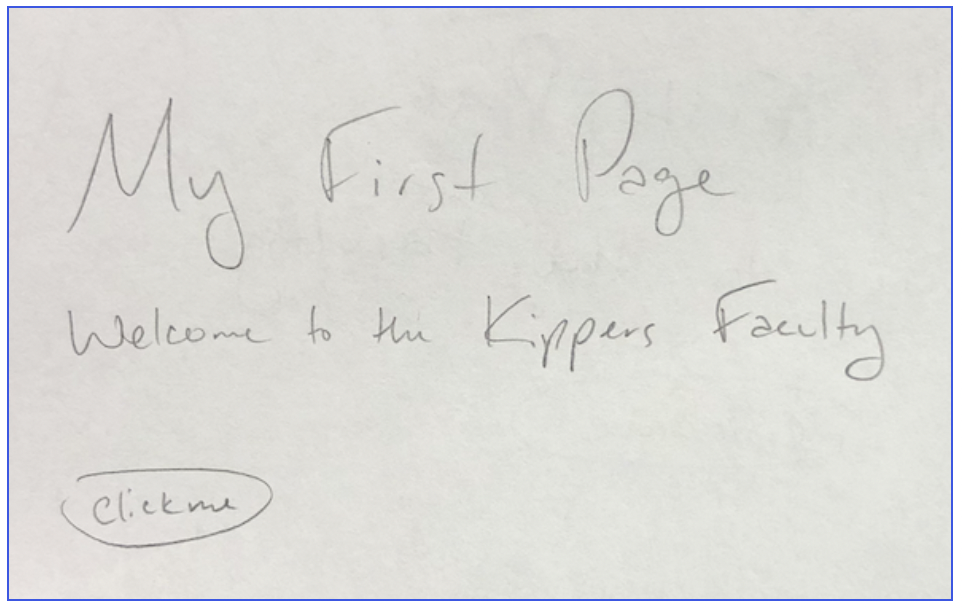 My First Page
Welcome to the Kippers Faculty
Click me